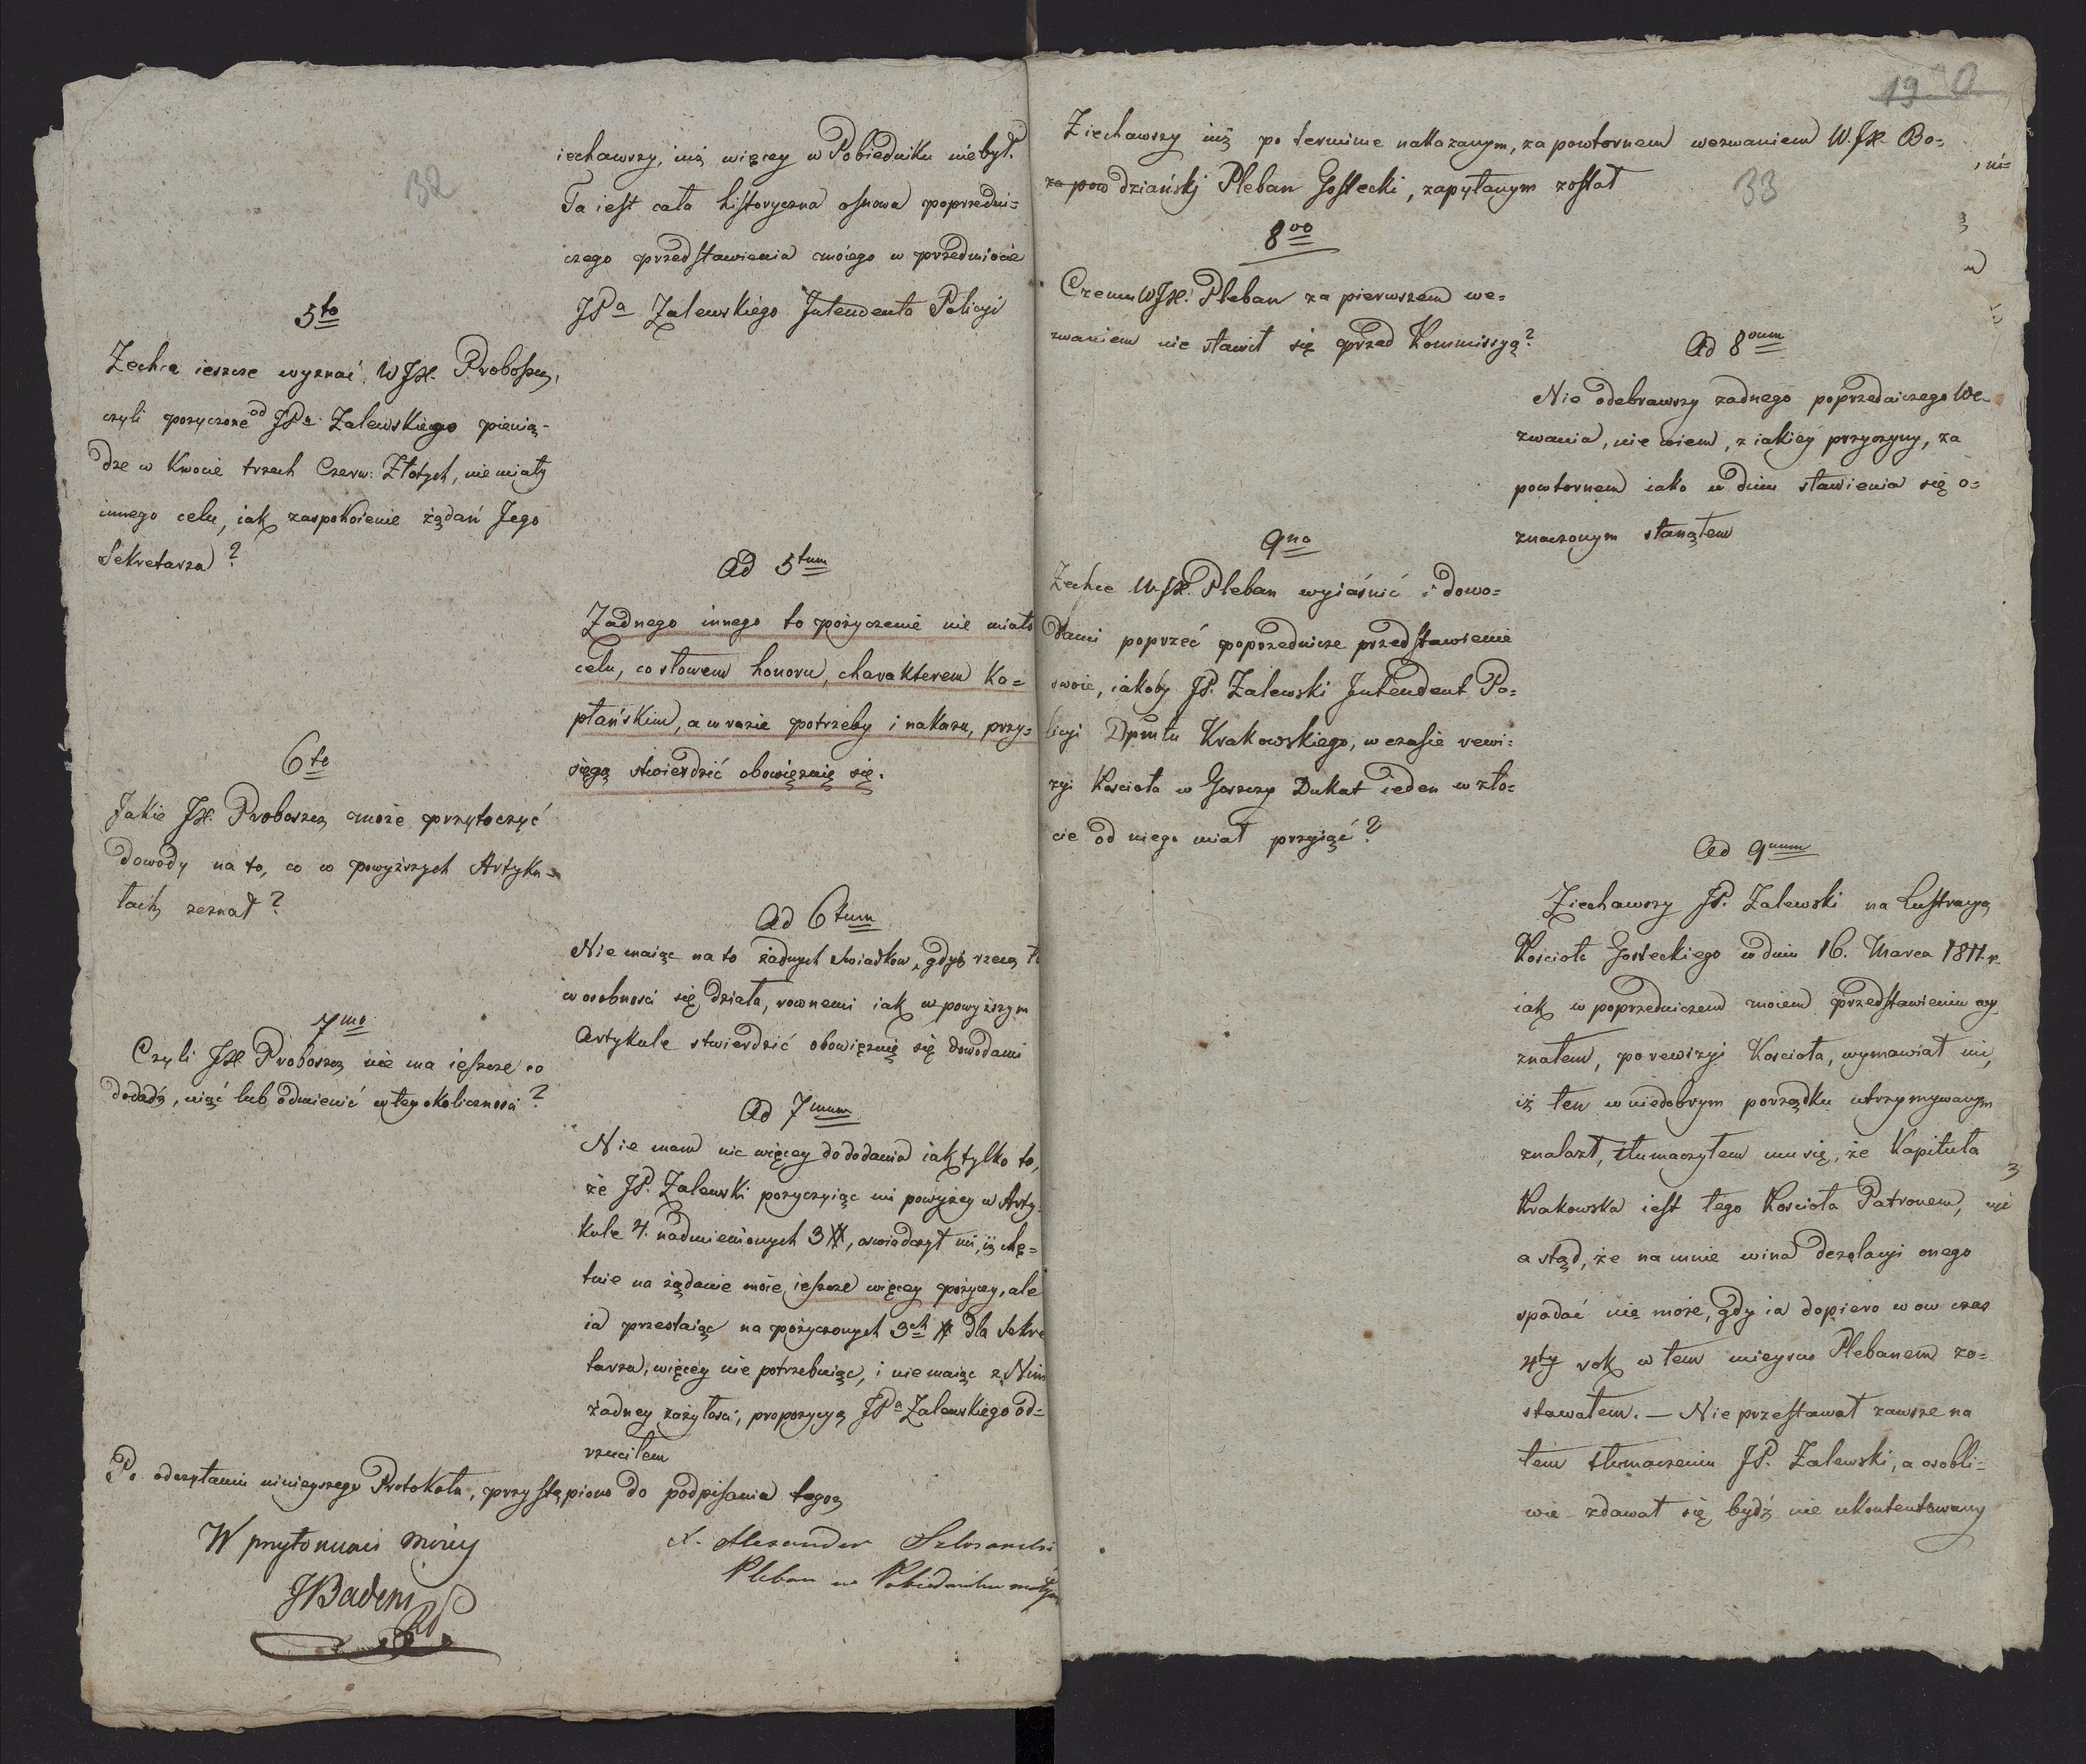 32
iechawszy, iuż więcey w Pobiedniku niebył.
Ta iest cała historyczna osnowa poprzedni-
czego przedstawienia moiego w przedmiocie
JPa Zalewskiego Intendenta Policyi
5to
Zechce ieszcze wyznać WJX. Proboszcz,
czyli pożyczone od JPa Zalewskiego pienią-
dze w kwocie trzech Czerw: Złotych, nie miały
innego celu, iak zaspokoienie żądań Jego
Sekretarza?
Ad 5tum
Żadnego innego to pożyczenie nie miało
celu, co słowem honoru, charakterem Ka-
płańskim, a w razie potrzeby i nakazu, przy-
sięgą stwierdzić obowięzuię się.
6to
Jakie JX. Proboszcz może przytoczyć
dowody na to, co w powyższych Artyku-
łach zeznał?
Ad 6tum
Nie maiąc na to żadnych świadkow, gdyż rzecz t
w osobności się działa, rownemi iak w powyższym
Artykule stwierdzić obowięzuię się dowodami
7mo
Czyli JX. Proboszcz nie ma ieszcze co
dodadź, uiąć lub odmienić w tey okoliczności?
Ad 7mum
Nie mam nic więcey do dodania iak tylko to,
że JP. Zalewski pożyczaiąc mi powyżey w Arty-
kule 4. nadmienionych 3 #, oswiadczył mi, iż chę-
tnie na żądanie moie ieszcze więcey pożyczy, ale
ia przestaiąc na pożyczonych 3ch # dla Sekre
tarza, więcey nie potrzebuiąc, i nie maiąc z Nim
żadney zażyłości, propozycyą JPa Zalewskiego od-
rzuciłem
Po odczytaniu ninieyszego Protokołu, przystąpiono do podpisania tegoż
W przytomności moiey
JBadeni
X. Alexander
Pleban w Pobiedniku małym
19
33
Ziechawszy iuż po terminie nakazanym, za powtornem wezwaniem W.JX. Bo-
dziański Pleban Gosłecki, zapytanym został
8vo
Czemu WJX. Pleban za pierwszem we-
zwaniem nie stawił się przed Kommissyą?
Ad 8vum
Nie odebrawszy żadnego poprzedniczego We-
zwania, nie wiem, z iakiey przyczyny, za
powtornem iako w dniu stawienia się o-
znaczonym stanąłem
9no
Zechce W.JX. Pleban wyiaśnić i dowo-
dami poprzeć poprzednicze przedstawienie
swoie, iakoby JP. Zalewski Intendent Po-
licyi Dpmtu Krakowskiego, w czasie rewi-
zyi Kościoła w Goszczy Dukat ieden w zło-
cie od niego miał przyiąć?
Ad 9num
Ziechawszy JP. Zalewski na Lustracyą
Kościoła Gosłeckiego w dniu 16. Marca 1811. r.
iak w poprzedniczem moiem przedstawieniu wy
znałem, po rewizyi Kościoła, wymawiał mi,
iż ten w niedobrym porządku utrzymywanym
znalazł, tłumaczyłem mu się, że Kapituła
Krakowska iest tego Kościoła Patronem,
a stąd, że na mnie wina dezolacyi onego
spadać nie może, gdy ia dopiero w ow czas
4ty rok w tem mieyscu Plebanem zo-
stawałem. — Nie przestawał zawsze na
tem tłumaczeniu JP. Zalewski, a osobli-
wie zdawał się bydź nie ukontentowany